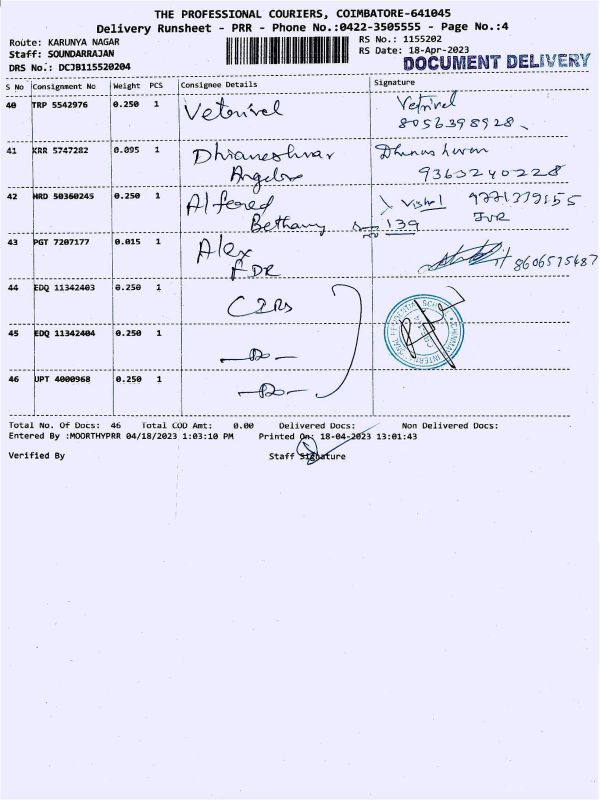 THE PROFESSIONAL COURIERS, COIMBATORE-641045
Delivery Runsheet - PRR - Phone No.:0422-3505555 - Page No.:4
Route: KARUNYA NAGAR
RS No.: 1155202
Staff: SOUNDARRAJAN
RS Date: 18-Apr-2023
DRS No.: DCJB115520204
DOCUMENT DELIVERY
S No Consignment No Weight PCS Consignee Details Signature
40 TRP 5542976 0.250 1 Vetrivel Vetrivel
8056398928
41 KRR 5747282 0.095 1 Dhianeshwar
Angels 9363240228
42 MRD 50360245 0.250 1 Alfered Vishal
Bethany 139 JVR
43 PGT 7207177 0.015 1 Alex
EDR 8606575687
44 EDQ 11342403 0.250 1 CIRS
45 EDQ 11342404 0.250 1 —Do—
46 UPT 4000968 0.250 1 —Do—
Total No. Of Docs: 46 Total COD Amt: 0.00 Delivered Docs: Non Delivered Docs:
Entered By :MOORTHYPRR 04/18/2023 1:03:10 PM Printed On: 18-04-2023 13:01:43
Verified By Staff Signature